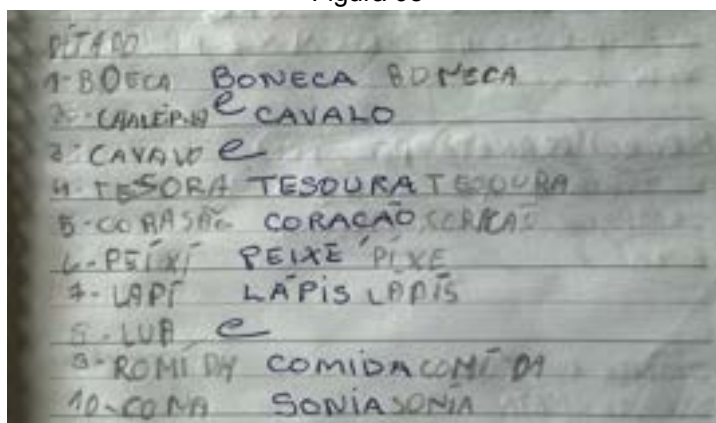 DITADO
1-BOECA BONECA BONECA
2- C CAVALO
3-CAVALO C
4-TESORA TESOURA TESOURA
5-CORASÃO CORACÃO
6-PEIXI PEIXE PIXE
7-LAPI LÁPIS LAPIS
8-LUA C
9-ROMIDA COMIDA COMIDA
10-CONA SONIA SONIA